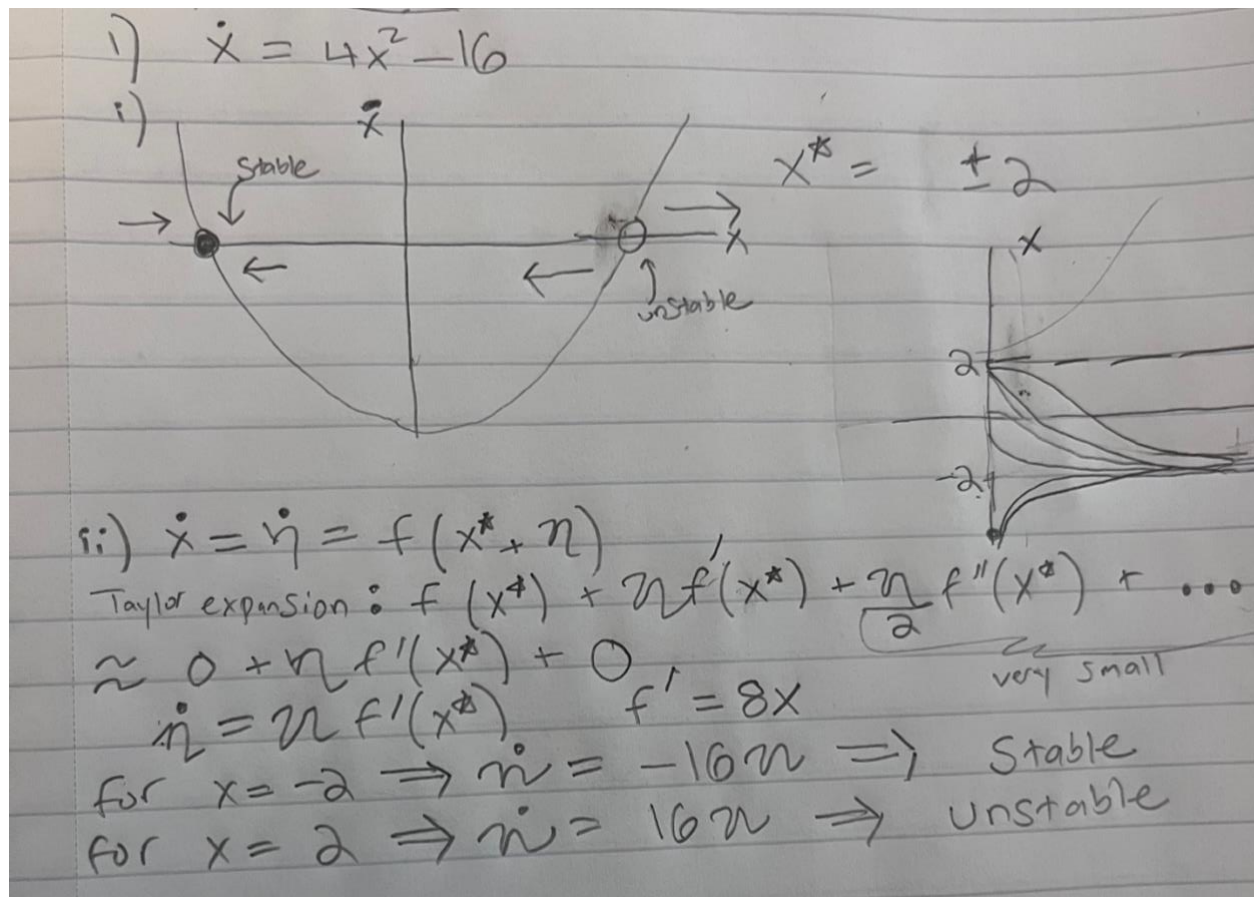 1) ẋ = 4x² - 16
i) ẋ
Stable
x
unstable
x* = ± 2
x
2
-2
ii) ẋ = η̇ = f(x* + η)
Taylor expansion: f(x*) + ηf'(x*) + η/2 f''(x*) + ...
very small
≈ 0 + η f'(x*) + 0
η̇ = η f'(x*) f' = 8x
for x = -2 ⇒ η̇ = -16η ⇒ Stable
for x = 2 ⇒ η̇ = 16η ⇒ unstable